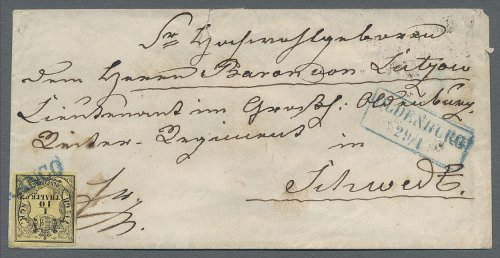 Sr Hochwohlgeboren
dem Herrn Baron von Lützow
Lieutenant im Großh: Oldenburg.
Reiter-Regiment in
Schwedt.
OLDENBURG
29/1
1/10
THALER